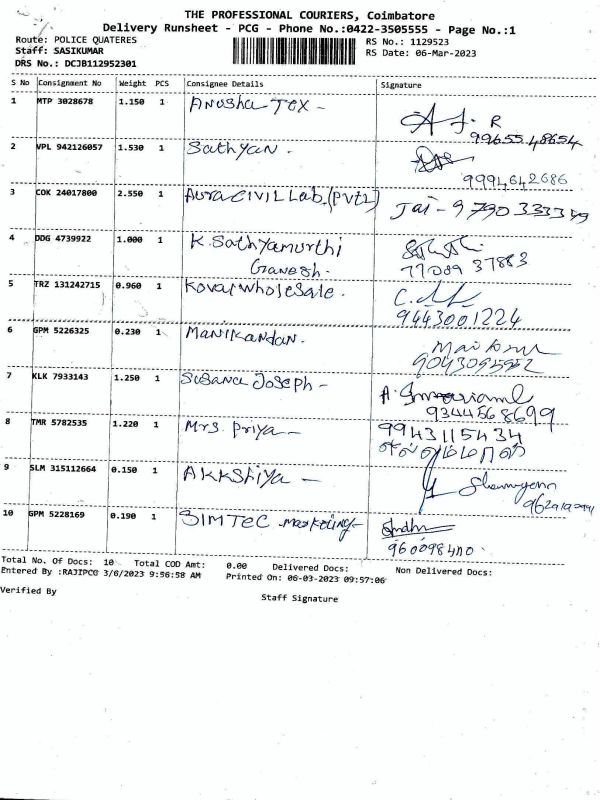 THE PROFESSIONAL COURIERS, Coimbatore
Delivery Runsheet - PCG - Phone No.:0422-3505555 - Page No.:1
Route: POLICE QUATERES
RS No.: 1129523
Staff: SASIKUMAR
RS Date: 06-Mar-2023
DRS No.: DCJB112952301
S No Consignment No Weight PCS Consignee Details Signature
1 MTP 3028678 1.150 1 Anusha Tex -
99655 48654
2 VPL 942126057 1.530 1 Sathyan.
9994642686
3 COK 24017800 2.550 1 Aura CIVIL Lab.(Pvt L)
Jai - 9790333359
4 DDG 4739922 1.000 1 K. Sathyamurthi
Ganesh.
77089 37883
5 TRZ 131242715 0.960 1 Kovai wholesale.
9443001224
6 GPM 5226325 0.230 1 Manikandan.
7 KLK 7933143 1.250 1 Susana Joseph -
9344568699
8 TMR 5782535 1.220 1 Mrs. Priya -
9943115434
9 SLM 315112664 0.150 1 AKKShiya -
10 GPM 5228169 0.190 1 SIMTEC marketing -
Total No. Of Docs: 10 Total COD Amt: 0.00 Delivered Docs: Non Delivered Docs:
Entered By :RAJIPCG 3/6/2023 9:56:58 AM Printed On: 06-03-2023 09:57:06
Verified By
Staff Signature